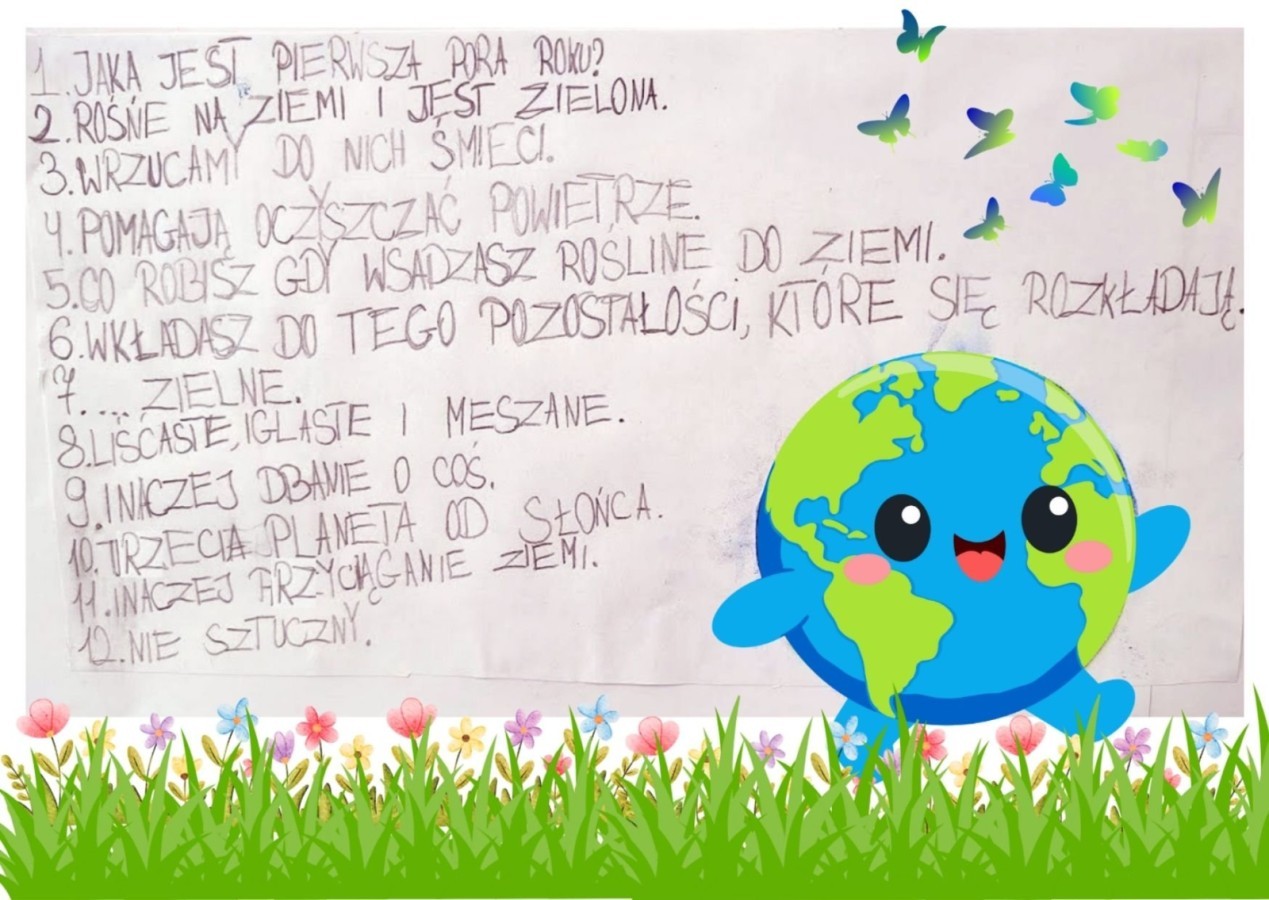 1. JAKA JEST PIERWSZA PORA ROKU?
2. ROŚNE NA ZIEMI I JEST ZIELONA.
3. WRZUCAMY DO NICH ŚMIECI.
4. POMAGAJĄ OCZYSZCZAĆ POWIETRZE.
5. CO ROBISZ GDY WSADZASZ ROSLINE DO ZIEMI.
6. WKŁADASZ DO TEGO POZOSTAŁOŚCI, KTÓRE SIĘ ROZKŁADAJĄ.
7. ... ZIELNE.
8. LIŚCASTE, IGLASTE I MESZANE.
9. INACZEJ DBANIE O COŚ.
10. TRZECIA PLANETA OD SŁOŃCA.
11. INACZEJ PRZYCIĄGANIE ZIEMI.
12. NIE SZTUCZNY.